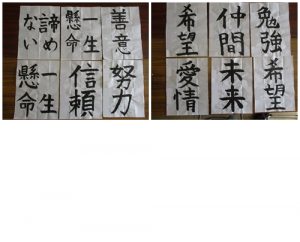 諦めない
一生懸命
善意
一生懸命
信頼
努力
希望
仲間
勉強
愛情
未来
希望